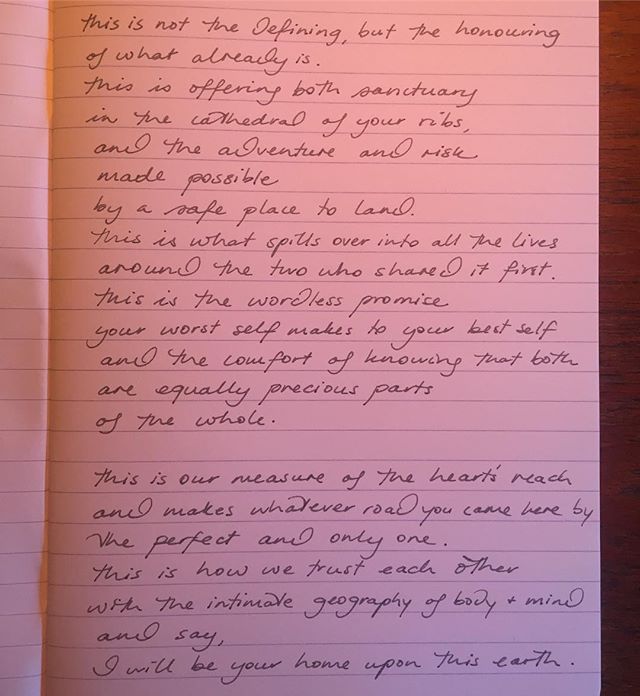 this is not the defining, but the honouring
of what already is.
this is offering both sanctuary
in the cathedral of your ribs,
and the adventure and risk
made possible
by a safe place to land.
this is what spills over into all the lives
around the two who shared it first.
this is the wordless promise
your worst self makes to your best self
and the comfort of knowing that both
are equally precious parts
of the whole.
this is our measure of the heart's reach
and makes whatever road you came here by
the perfect and only one.
this is how we trust each other
with the intimate geography of body + mind
and say,
I will be your home upon this earth.